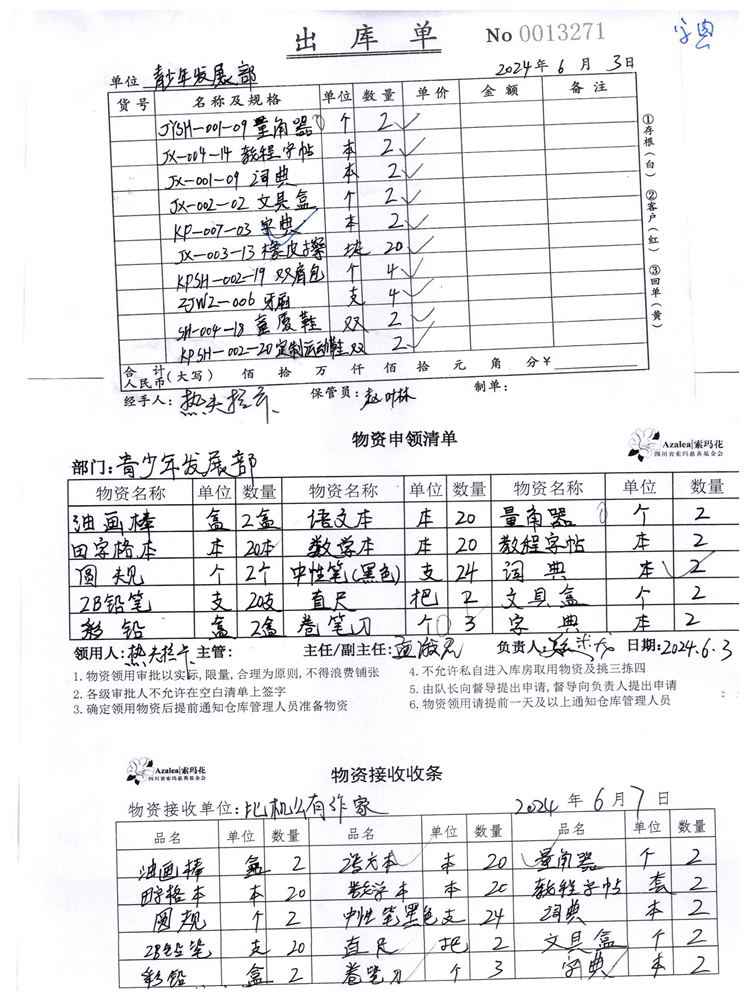 出 库 单 No 0013271 字典
单位 青少年发展部 2024年 6 月 3日
货号 名称及规格 单位 数量 单价 金额 备注
JYSH-001-09 量角器 个 2
JX-004-14 教程字帖 本 2
JX-001-09 词典 本 2
JX-002-02 文具盒 个 2
KP-007-03 字典 本 2
JX-003-13 橡皮擦 块 20
KPSH-002-19 双肩包 个 4
ZJWZ-006 牙刷 支 4
SH-004-18 童鞋 双 2
KPSH-002-20 定制运动鞋 双 2
①存根(白) ②客户(红) ③回单(黄)
合计人民币(大写) 佰 拾 万 仟 佰 拾 元 角 分 ¥
经手人: 保管员: 赵叶林 制单:
物资申领清单
Azalea|索玛花
四川省索玛慈善基金会
部门: 青少年发展部
物资名称 单位 数量 物资名称 单位 数量 物资名称 单位 数量
油画棒 盒 2盒 语文本 本 20 量角器 个 2
田字格本 本 20本 数学本 本 20 教程字帖 本 2
圆规 个 2个 中性笔(黑色) 支 24 词典 本 2
2B铅笔 支 20支 直尺 把 2 文具盒 个 2
彩铅 盒 2盒 卷笔刀 个 3 字典 本 2
领用人: 主管: 主任/副主任: 负责人: 日期: 2024.6.3
1. 物资领用审批以实际,限量,合理为原则,不得浪费铺张
4. 不允许私自进入库房取用物资及挑三拣四
2. 各级审批人不允许在空白清单上签字
5. 由队长向督导提出申请,督导向负责人提出申请
3. 确定领用物资后提前通知仓库管理人员准备物资
6. 物资领用请提前一天及以上通知仓库管理人员
Azalea|索玛花
四川省索玛慈善基金会
物资接收收条
物资接收单位: 2024 年 6 月 7 日
品名 单位 数量 品名 单位 数量 品名 单位 数量
油画棒 盒 2 语文本 本 20 量角器 个 2
田字格本 本 20 数学本 本 20 教程字帖 套 2
圆规 个 2 中性笔黑色 支 24 词典 本 2
2B铅笔 支 20 直尺 把 2 文具盒 个 2
彩铅 盒 2 卷笔刀 个 3 字典 本 2